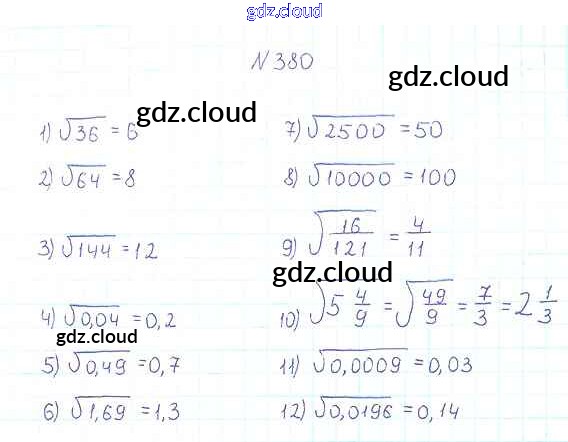 gdz.cloud
N 380
gdz.cloud
gdz.cloud
1) √36 = 6
2) √64 = 8
3) √144 = 12
4) √0,04 = 0,2
gdz.cloud
5) √0,49 = 0,7
6) √1,69 = 1,3
7) √2500 = 50
8) √10000 = 100
9) √16/121 = 4/11
gdz.cloud
10) √5 4/9 = √49/9 = 7/3 = 2 1/3
11) √0,0009 = 0,03
12) √0,0196 = 0,14